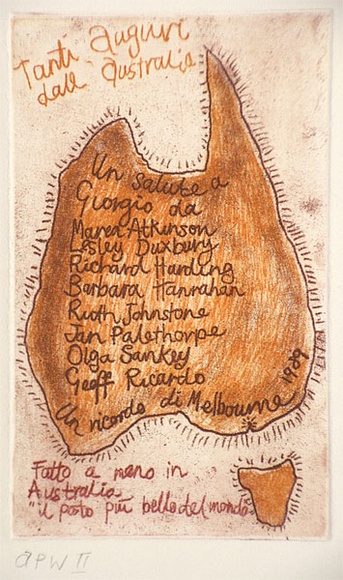 Tanti auguri
dall' Australia
Un salute a
Giorgio da
Maren Atkinson
Lesley Duxbury
Richard Harding
Barbara Hanrahan
Ruth Johnstone
Jan Palethorpe
Olga Sankey
Geoff Ricardo
Un ricordo di Melbourne 1989
Fatto a mano in
Australia
"il posto più bello del mondo"
APW II